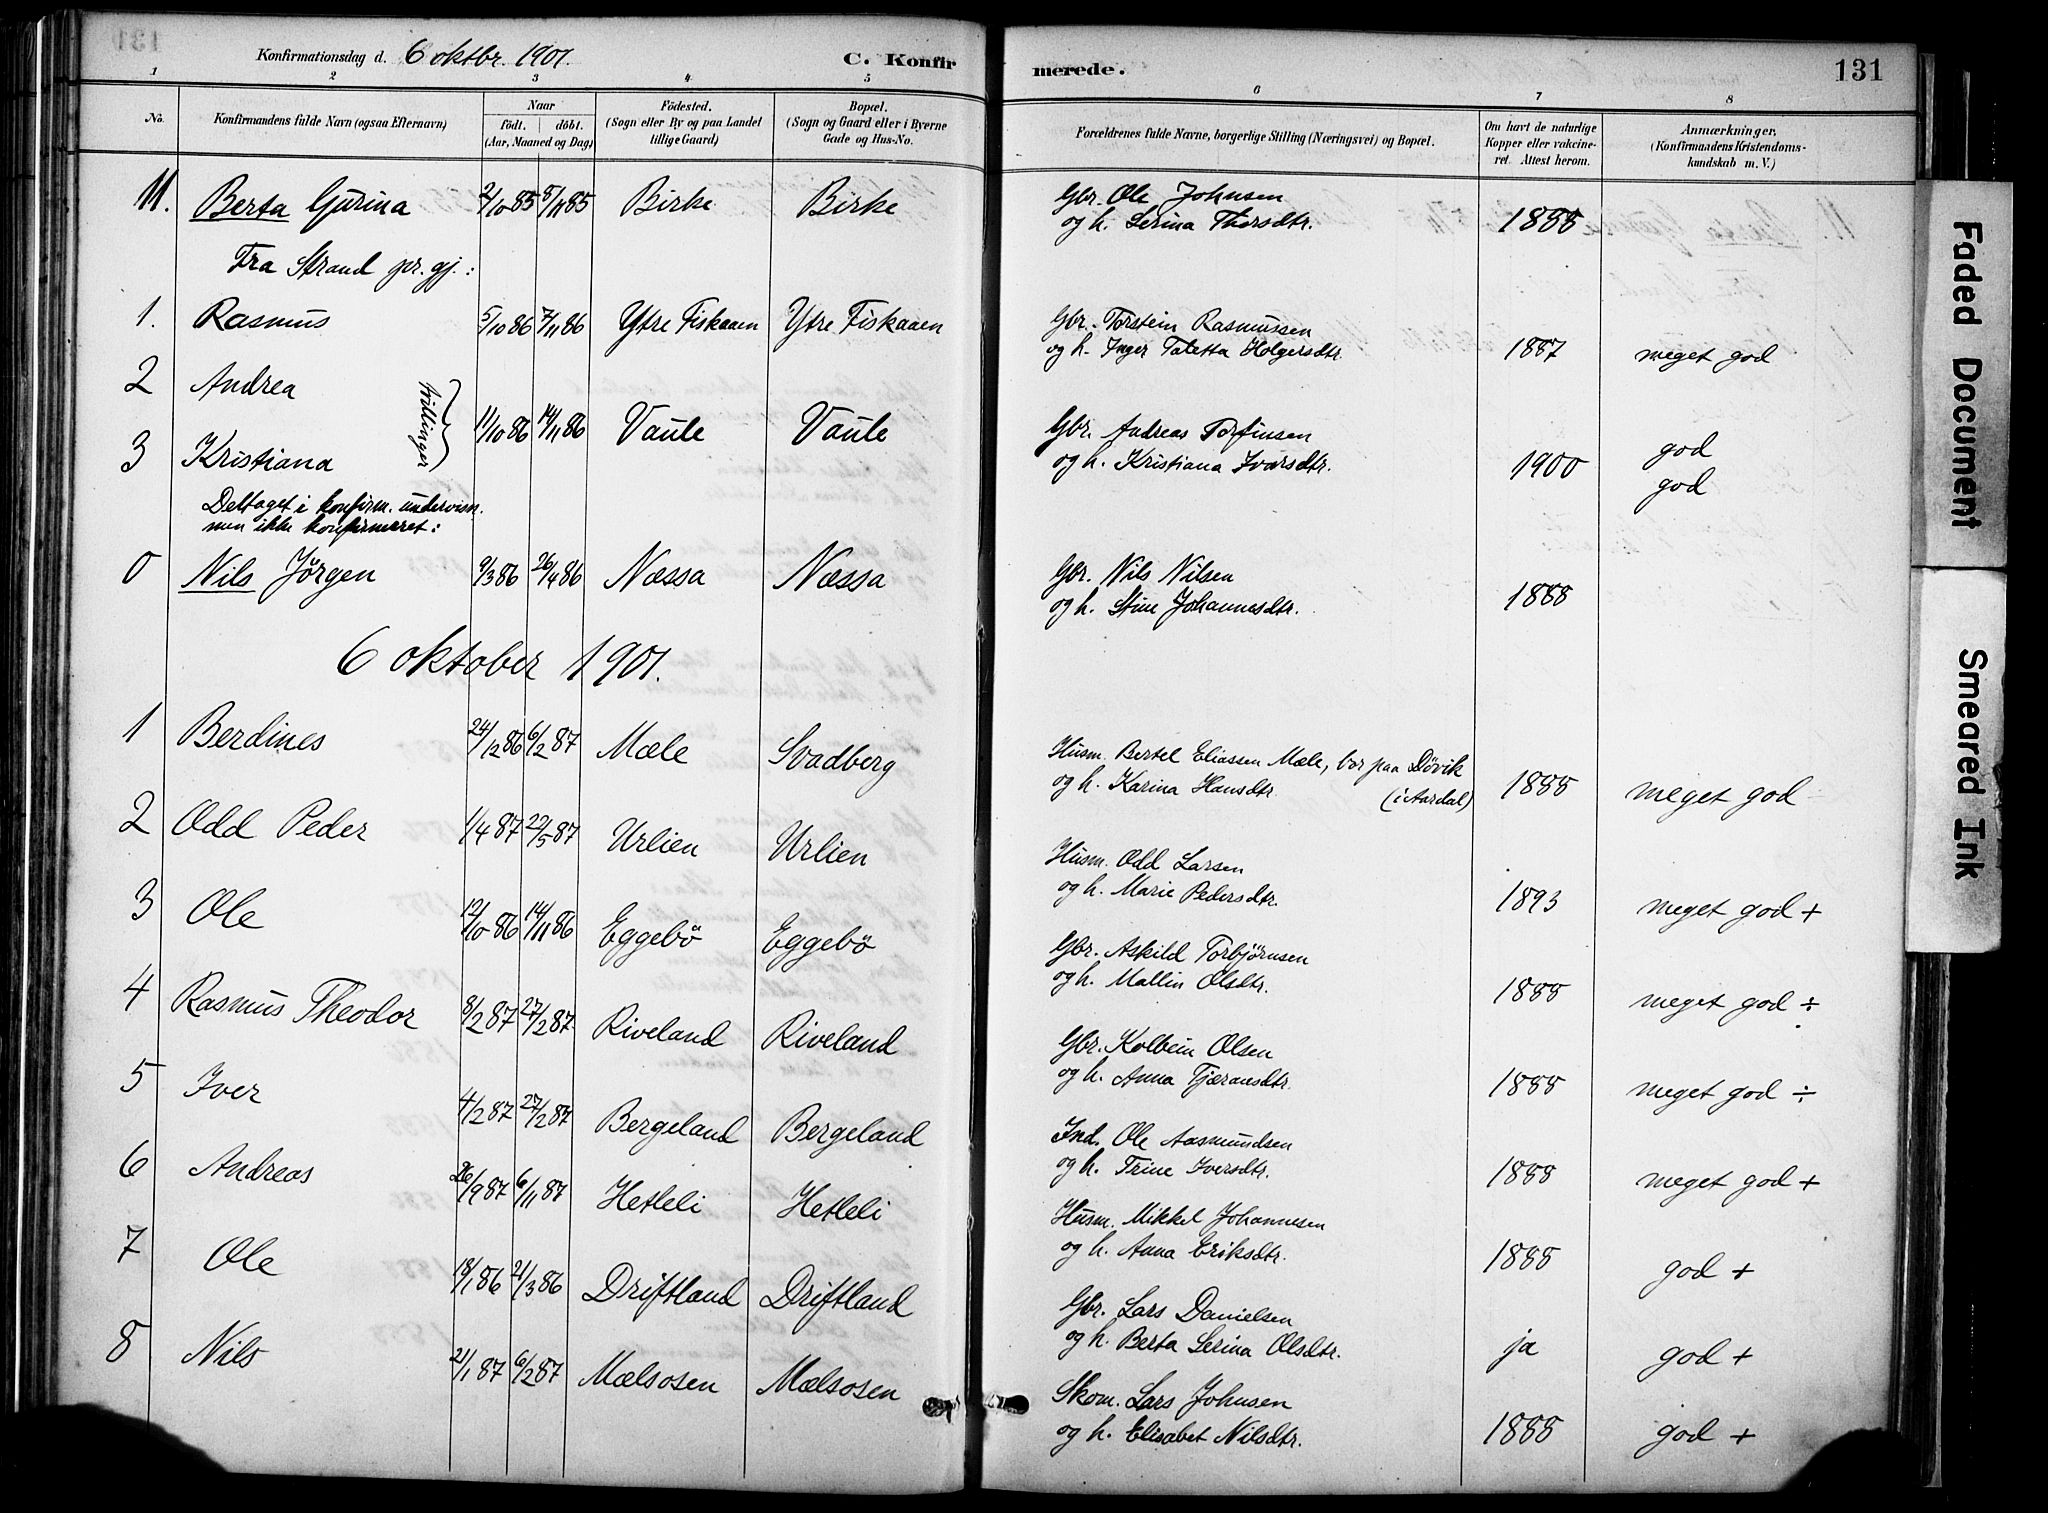 Konfirmationsdag d. 6 oktbr. 1901.
C. Konfirmerede.
131
1 2 3 4 5 6 7 8
No.
Konfirmandens fulde Navn (ogsaa Efternavn)
Naar
födt. döbt.
(Aar, Maaned og Dag)
Födested.
(Sogn eller By og paa Landet
tillige Gaard)
Bopæl.
(Sogn og Gaard eller i Byerne
Gade og Hus-No.
Forældrenes fulde Navne, borgerlige Stilling (Næringsvei) og Bopæl.
Om havt de naturlige
Kopper eller vakcine-
ret. Attest herom.
Anmærkninger,
(Konfirmandens Kristendoms-
kundskab m. V.)
11. Berta Gurina 2/10 85 8/11 85 Birke Birke Gbr. Ole Johnsen
og h. Serina Thorsdtr. 1888
Fra Strand pr. gj.:
1. Rasmus 5/10 86 7/11 86 Ytre Fiskaaen Ytre Fiskaaen Gbr. Torstein Rasmussen
og h. Inger Taletta Holgersdtr. 1887 meget god
2 Andrea
tvillinger 11/10 86 14/11 86 Vaule Vaule Gbr. Andreas Torfinsen
3 Kristiana og h. Kristiana Ivarsdtr. 1900 god
god
Deltaget i konfirm. undervisn.
men ikke konfirmeret:
0 Nils Jörgen 9/3 86 26/4 86 Næssa Næssa Gbr. Nils Nilsen
og h. Stine Johannesdtr. 1888
6 oktober 1901.
1 Berdines 24/12 86 6/2 87 Mæle Svadberg Husm. Bertel Eliassen Mæle, bor paa Dövik
og h. Karina Hansdtr. (i Aardal) 1888 meget god
2 Odd Peder 1/4 87 22/5 87 Urlien Urlien Husm. Odd Larsen
og h. Marie Pedersdtr. 1893 meget god +
3 Ole 12/10 86 14/11 86 Eggebö Eggebö Gbr. Askild Torbjörnsen
og h. Mallin Olsdtr. 1888 meget god ÷
4 Rasmus Theodor 8/2 87 27/2 87 Riveland Riveland Gbr. Kolbein Olsen
og h. Anna Tjæransdtr. 1888 meget god ÷
5 Iver 4/2 87 27/2 87 Bergeland Bergeland Ind. Ole Aasmundsen
og h. Trine Iversdtr. 1888 meget god +
6 Andreas 26/9 87 6/11 87 Hetleli Hetleli Husm. Mikkel Johannesen
og h. Anna Eriksdtr. 1888 god +
7 Ole 18/1 86 21/3 86 Driftland Driftland Gbr. Lars Danielsen
og h. Berta Serina Olsdtr. ja god +
8 Nils 21/1 87 6/2 87 Mælsosen Mælsosen Skom. Lars Johnsen
og h. Elisabet Nilsdtr. 1888 god +
Faded Document
Smeared Ink